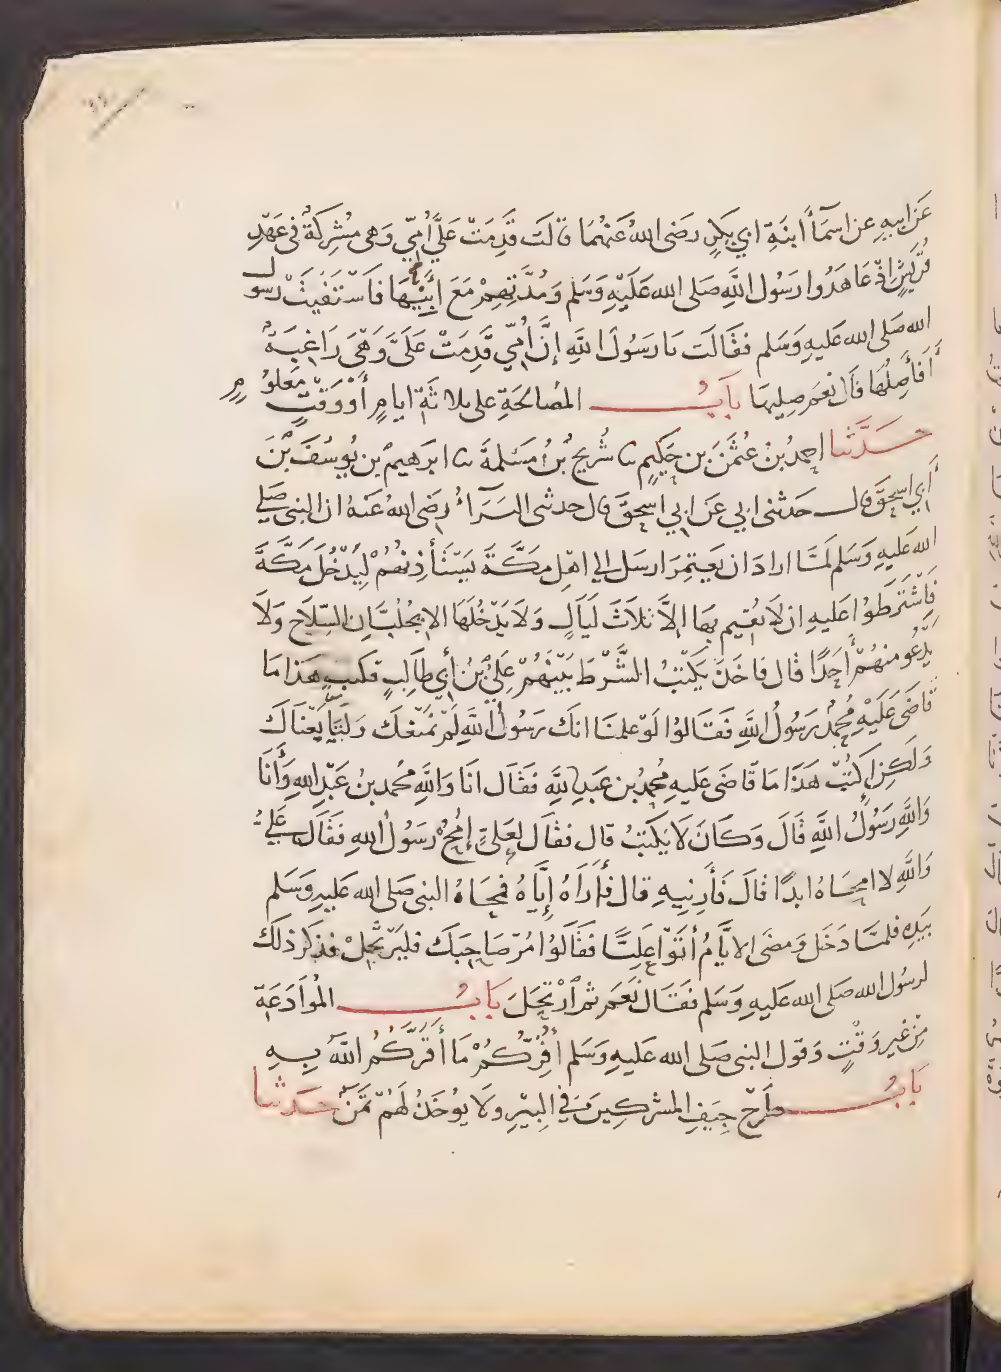 عَنْ ابيهِ عن اسْمَآءَ ابنَةِ ابي بَكرٍ رضى اللهُ عَنْهُمَا قالَت قَدِمَتْ عَلَىَّ اُمّي وَهى مُشِركَةٌ فى عَهْدِ
قُرَيشٍ اذْ عَاهَدُوا رَسُولَ اللَّهِ صَلى الله عَلَيْهِ وَسَلم وَمُدَّتِهِمْ مَعَ أبيْهَا فَاَسْتَفْتَتْ رسول
الله صَلى الله عَليهِ وَسَلم فقَالَت يَا رَسُولَ اللَّهِ إنَّ اُمّي قَدِمَتْ عَلَىَّ وَهْىَ رَاغِبَةٌ
أَفَأَصِلُهَا قَالَ نعَمَ صِلِيهَا بَابُ المُصَالحَةِ على ثلاثَةِ ايامٍ أَوْ وَقْتٍ مَعلُومٍ
حَدَّثنا احمدُ بْنُ عُثْمَنَ بن حَكِيمٍ نا شُرَيح بْنُ مَسْلمةَ نا ابرهيمُ بن يُوسُفَ بْنِ
أَبي اسحقَ قال حدثنى ابي عَن ابي اسحقَ قال حدثنى البَرَآءُ رضى اللهُ عَنهُ ان النبى صَلي
الله عَليهِ وَسَلم لَمَّا ارادَ ان يَعتمِرَ ارسَل الي اهْلِ مَكَّةَ يَسْتَأذِنُهُمْ لِيَدْخُلَ مَكَّةَ
فَاشْتَرطوُا عَليهِ ان لَا يُقيم بهَا إلَّا ثلَاثَ لَيَالٍ وَلَا يَدْخُلَهَا الا بجُلُبَّانِ السِّلَاحِ وَلَا
يَدْعُو منهُمْ أحَدًا قال فاخَذَ يَكْتُبُ الشَّرْطَ بَيْنَهُمْ عَلِيُّ بْنُ أَبي طَالِبٍ فكتب هَذا مَا
قَاضَى عَلَيْهِ مُحَمَّدٌ رَسُولُ اللَّهِ فَقَالوُا لَوْ علمنَا انكَ رَسُولُ اللَّهِ لَمْ نَمْنَعْكَ وَلَبَايَعْنَاكَ
وَلَكِنِ اكتُبْ هَذَا مَا قَاضَى عَليهِ مُحمدُ بن عَبد اللَّهِ فقَالَ انَا وَاللَّهِ مُحمدُ بنُ عَبْدِ اللهِ وَأَنَا
وَاللَّهِ رَسُولُ اللَّهِ قَالَ وَكَانَ لَا يَكتُبُ قال فقَال لِعَلِيٍّ اِمْحُ رَسُولَ اللهِ فقَالَ عَلِيٌّ
وَاللَّهِ لا امحَاهُ ابدًا قَالَ فَأَرِنِيهِ قال فَأَرَاهُ إيَّاهُ فمحَاهُ النبى صَلى الله عَليهِ وَسَلم
بيَدِهِ فلمَّا دَخَل وَمَضَى الايَّامُ أَتَوْا عَلِيًّا فَقَالوُا مُرْ صَاحِبَكَ فليَرْتَحِلْ فذكرَ ذلكَ
لرسُول الله صَلى الله عَليهِ وَسَلم فقَالَ نَعَمْ ثمَّ اَرْتَحَلَ بَابُ المُوَادَعَةِ
مِنْ غَيرِ وَقْتٍ وَقول النبى صَلى الله عَليهِ وَسَلم أُقِرُّكُمْ مَا أَقَرَّكُمُ اللَّهُ بِهِ
بَابُ طَرْح جِيَفِ المشركِينَ في البيْرِ ولَا يُوْخَذُ لَهُمْ ثَمَنٌ حَدثنا